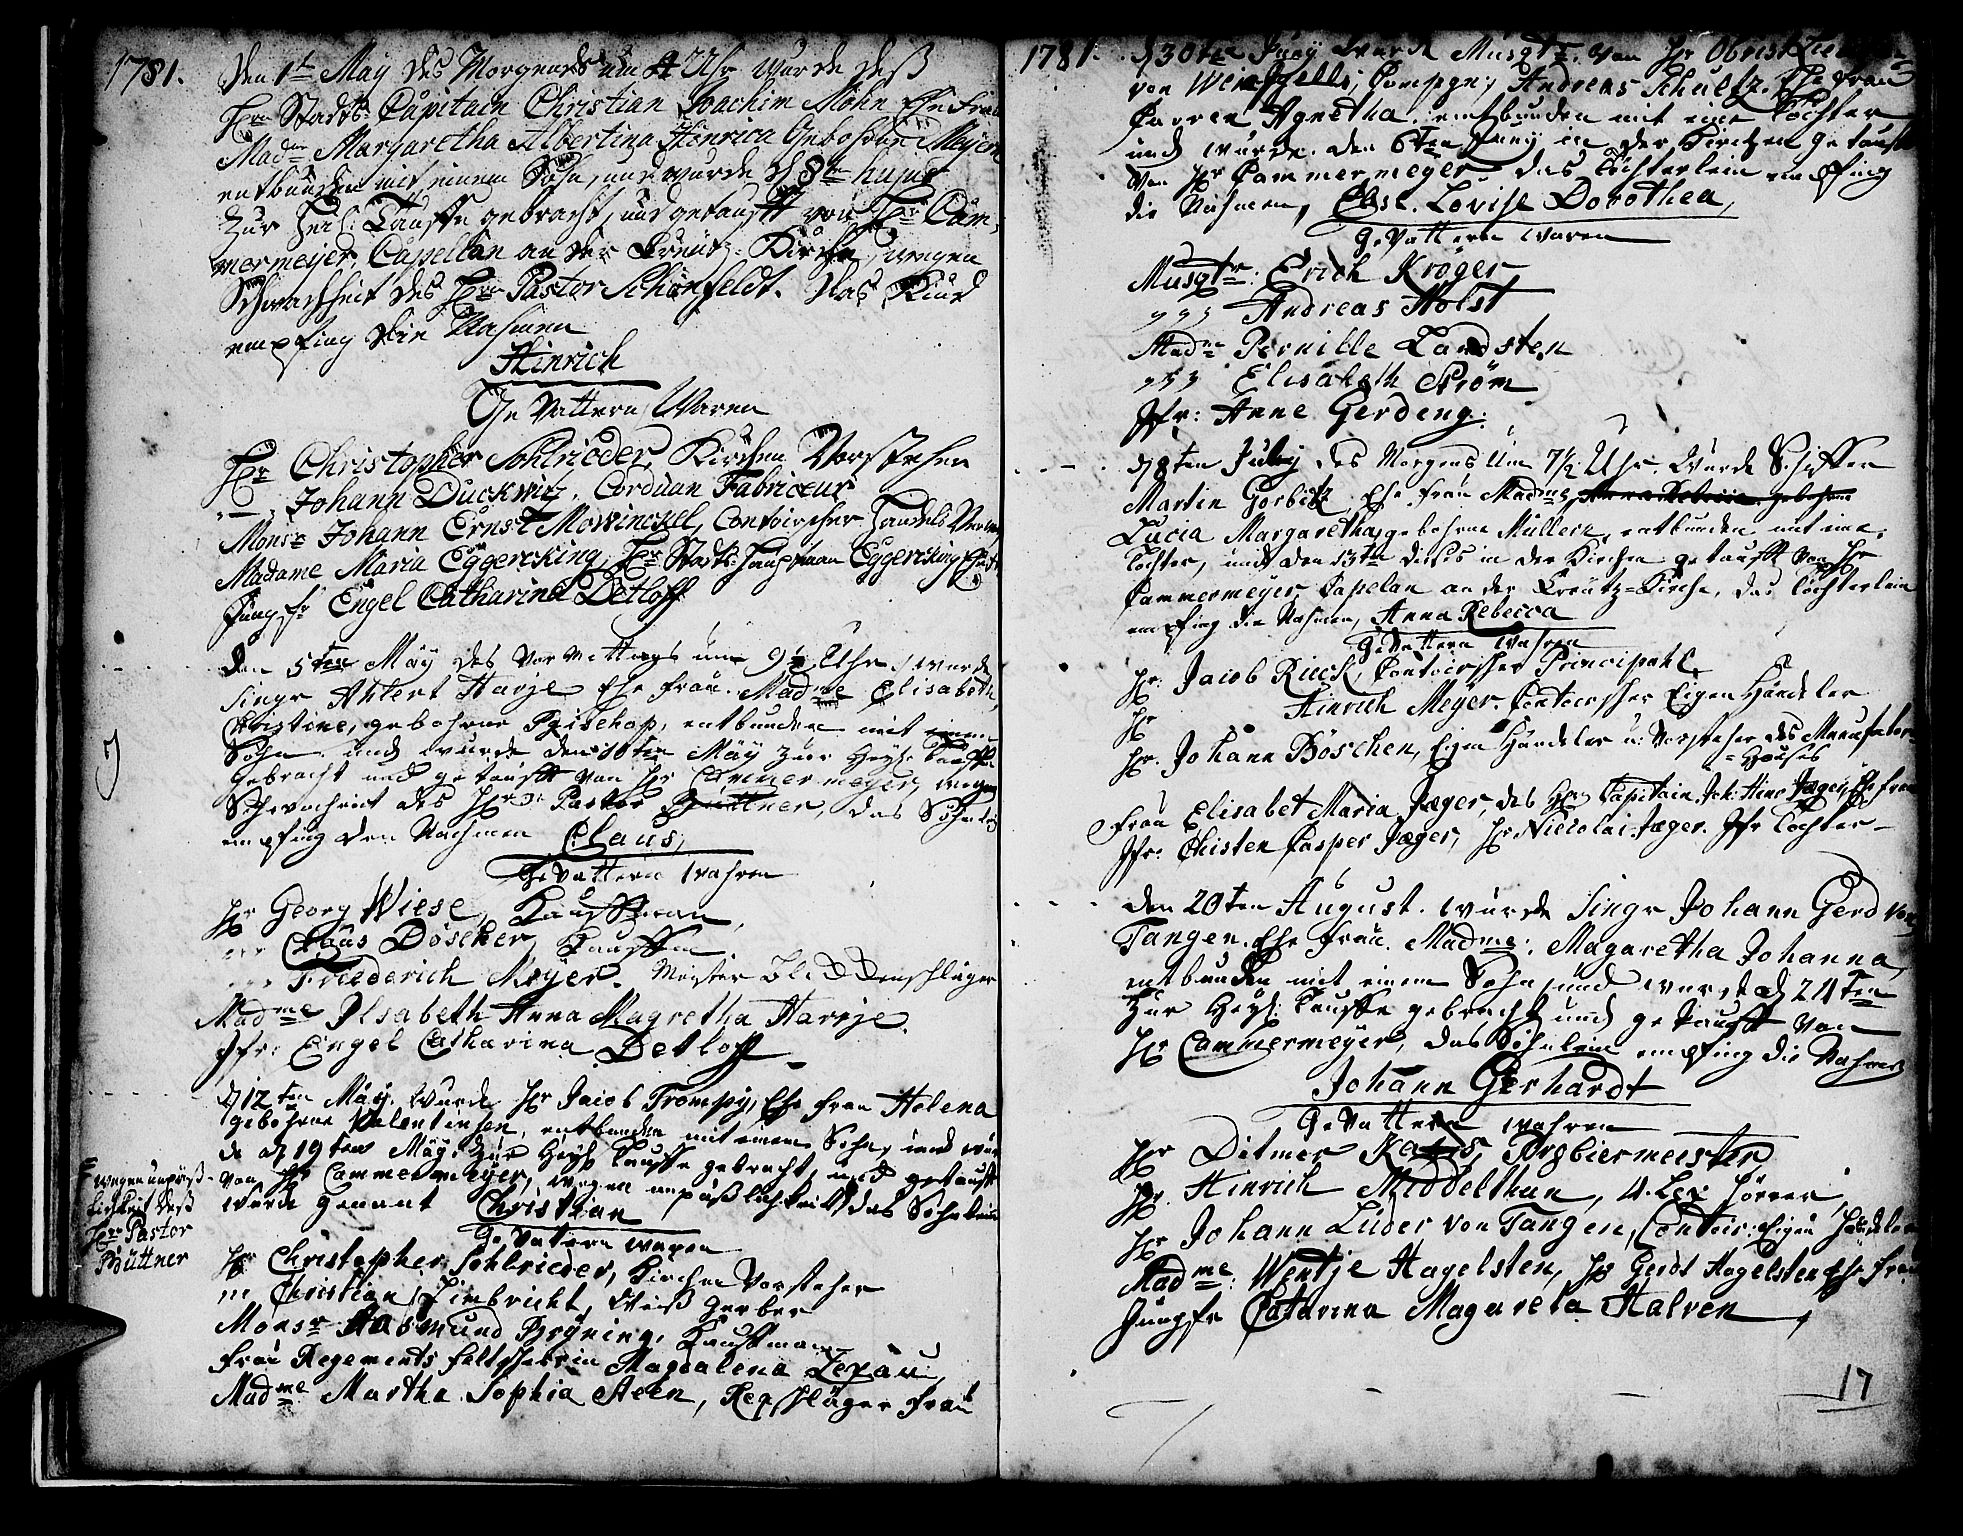 1781. Den 1t May des Morgens um 4 Uhr wurde deß
Hrn Stadts-Capitain Christian Joachim Möhn Ehe Frau
Madme Margaretha Albertina Hinrica Gebohrne Meyern
entbunden mit einem Sohn, und wurde d 8ten hujus
zur Heil: Tauffe gebracht, und getaufft von Hr Cam-
mermeijer, Capellan an der Creutz-Kirche, wegen
Schwachheit des Hrn Pastor Schönfeldt. Das Kind
empfing die Nahmen
Hinrich
Gevattern Waren
Hr Christopher Sohlrieder, Kirchen Vorsteher
Johann Duckwitz, Corduan Fabriceur
Monsr Johann Ernst Mowinckel, Contoirscher Handels Verw.
Madame Maria Eggerking, Hr Stadts-Hauptman Eggerking Ehefr.
Jungfr Engel Catharina Detloff
Den 5ten Máy des Vormittags um 9½ Uhr, wurde
Singr Ahlert Harje Ehe Frau. Madme Elisabeth
Christine, gebohrne Bischop, entbunden mit einem
Sohn und wurde den 10ten Máy zur Heyl: Tauffe
gebracht und getaufft von Hr Cammermeyer, wegen
Schwachheit des Hrn Pastor Büttner, das Söhnlein
empfing den Nahmen Claus,
Gevattern Wahren
Hr Georg Wiese, Kauffman,
Claus Döscher, Kauffm
Friederich Meyer. Meister Bleddenschläger
Madme Ilsabeth Anna Magretha Harje.
Jfr: Engel Catharina Detloff
d 12ten Máy. wurde Hr Jacob Trompy, Ehe Frau Helena
gebohrne Valentinsen, entbunden mit einem Sohn, und wur
de d 19ten Máy, zur Heyl: Tauffe gebracht, und getaufft
von Hr Cammermeyer, wegen unpäßlichkeit das Söhnlein
wurde genant Christian
wegen unpäß-
lichkeit deß
Hrn Pastor
Büttner
Gevattern waren
Hr Christopher Sohlrieder, Kirchen Vorsteher
Christian Limbricht, Weiß Gerber
Monsr Aasmund Bryning, Kauffman
Frau Regements Feltscherin Magdalena Lexau
Madme Martha Sophia Steen, Repschläger Frau
1781. d 30ten Juny wurde Musqtr. von Hr Obrist Lieut.
von Weinzells, Compgn, Andreas Schultz. Ehe Frau
Carren Agnetha. entbunden mit eine Tochter
und wurde. den 6ten Juny in der Kirchen getaufft
von Hr Cammermeyer das Töchterlein empfing
die Nahmen, Else. Lovise Dorothea,
Gevattern waren
Musqtr: Erich Kröger
Andreas Holst
Madme Pernille Landsten
Elisabeth Strøm
Jfr: Anne Gerdeng.
d 8ten July des Morgens um 7½ Uhr. wurde Schiffer
Martin Gorbitz, Ehe Frau Madme Anna Rebecca gebohrne
Lucia Margaretha, gebohrne Müllern, entbunden mit eine
Tochter, und den 13ten dieses in der Kirchen getaufft von Hr
Cammermeyer, Capelan an der Creutz-Kirche, das Töchterlein
empfing die Nahmen, Anna Rebecca
Gevattern wahren
Hr Jacob Rück, Contoirscher Principahl
Hr Hinrich Meyer. Contoirscher Eigen Händeler
Hr. Johann Böschen, Eigen Händeler u: Vorsteher des Manufactur
=Hauses
Frau Elisabet Maria Jæger, des Hrn Capitain Joh: Hinr Jæger, Ehe Frau
Jfr: Christen Casper Jæger, Hr Niecolai Jæger. Jfr Tochter
Den 20ten August. wurde Singr Johann Gerd von
Tangen. Ehe Frau. Madme: Magaretha Johanna,
entbunden mit einem Sohn, und wurde d 24ten
zur Heyl: Tauffe gebracht und getaufft von
Hr Cammermeyer, das Söhnlein empfing die Nahmen
Johann Gerhardt
Gevattern wahren
Hr Ditmer Kahrs, Brbiermeister
Hr Hinrich Middelthun, U. Lex Hörrer,
Hr Johann Lüder von Tangen, Contoir: Eigen Händeler
Madme: Wentje Hagelsten, Hr Gerdt Hagelsten Ehe Frau
Jungfr Catarina Magareta Halven
17